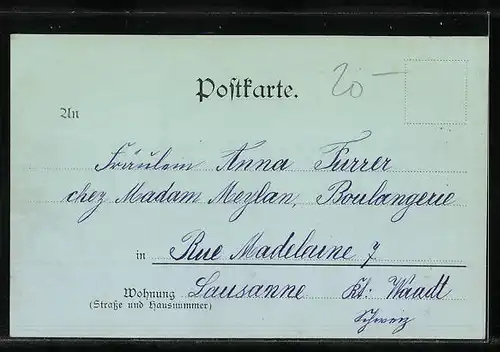 Postkarte.
20-
An
Fräulein Anna Furrer
chez Madam Meylan, Boulangerie
in Rue Madelaine 7
Wohnung Lausanne Kt. Waadt
(Straße und Hausnummer)
Schweiz